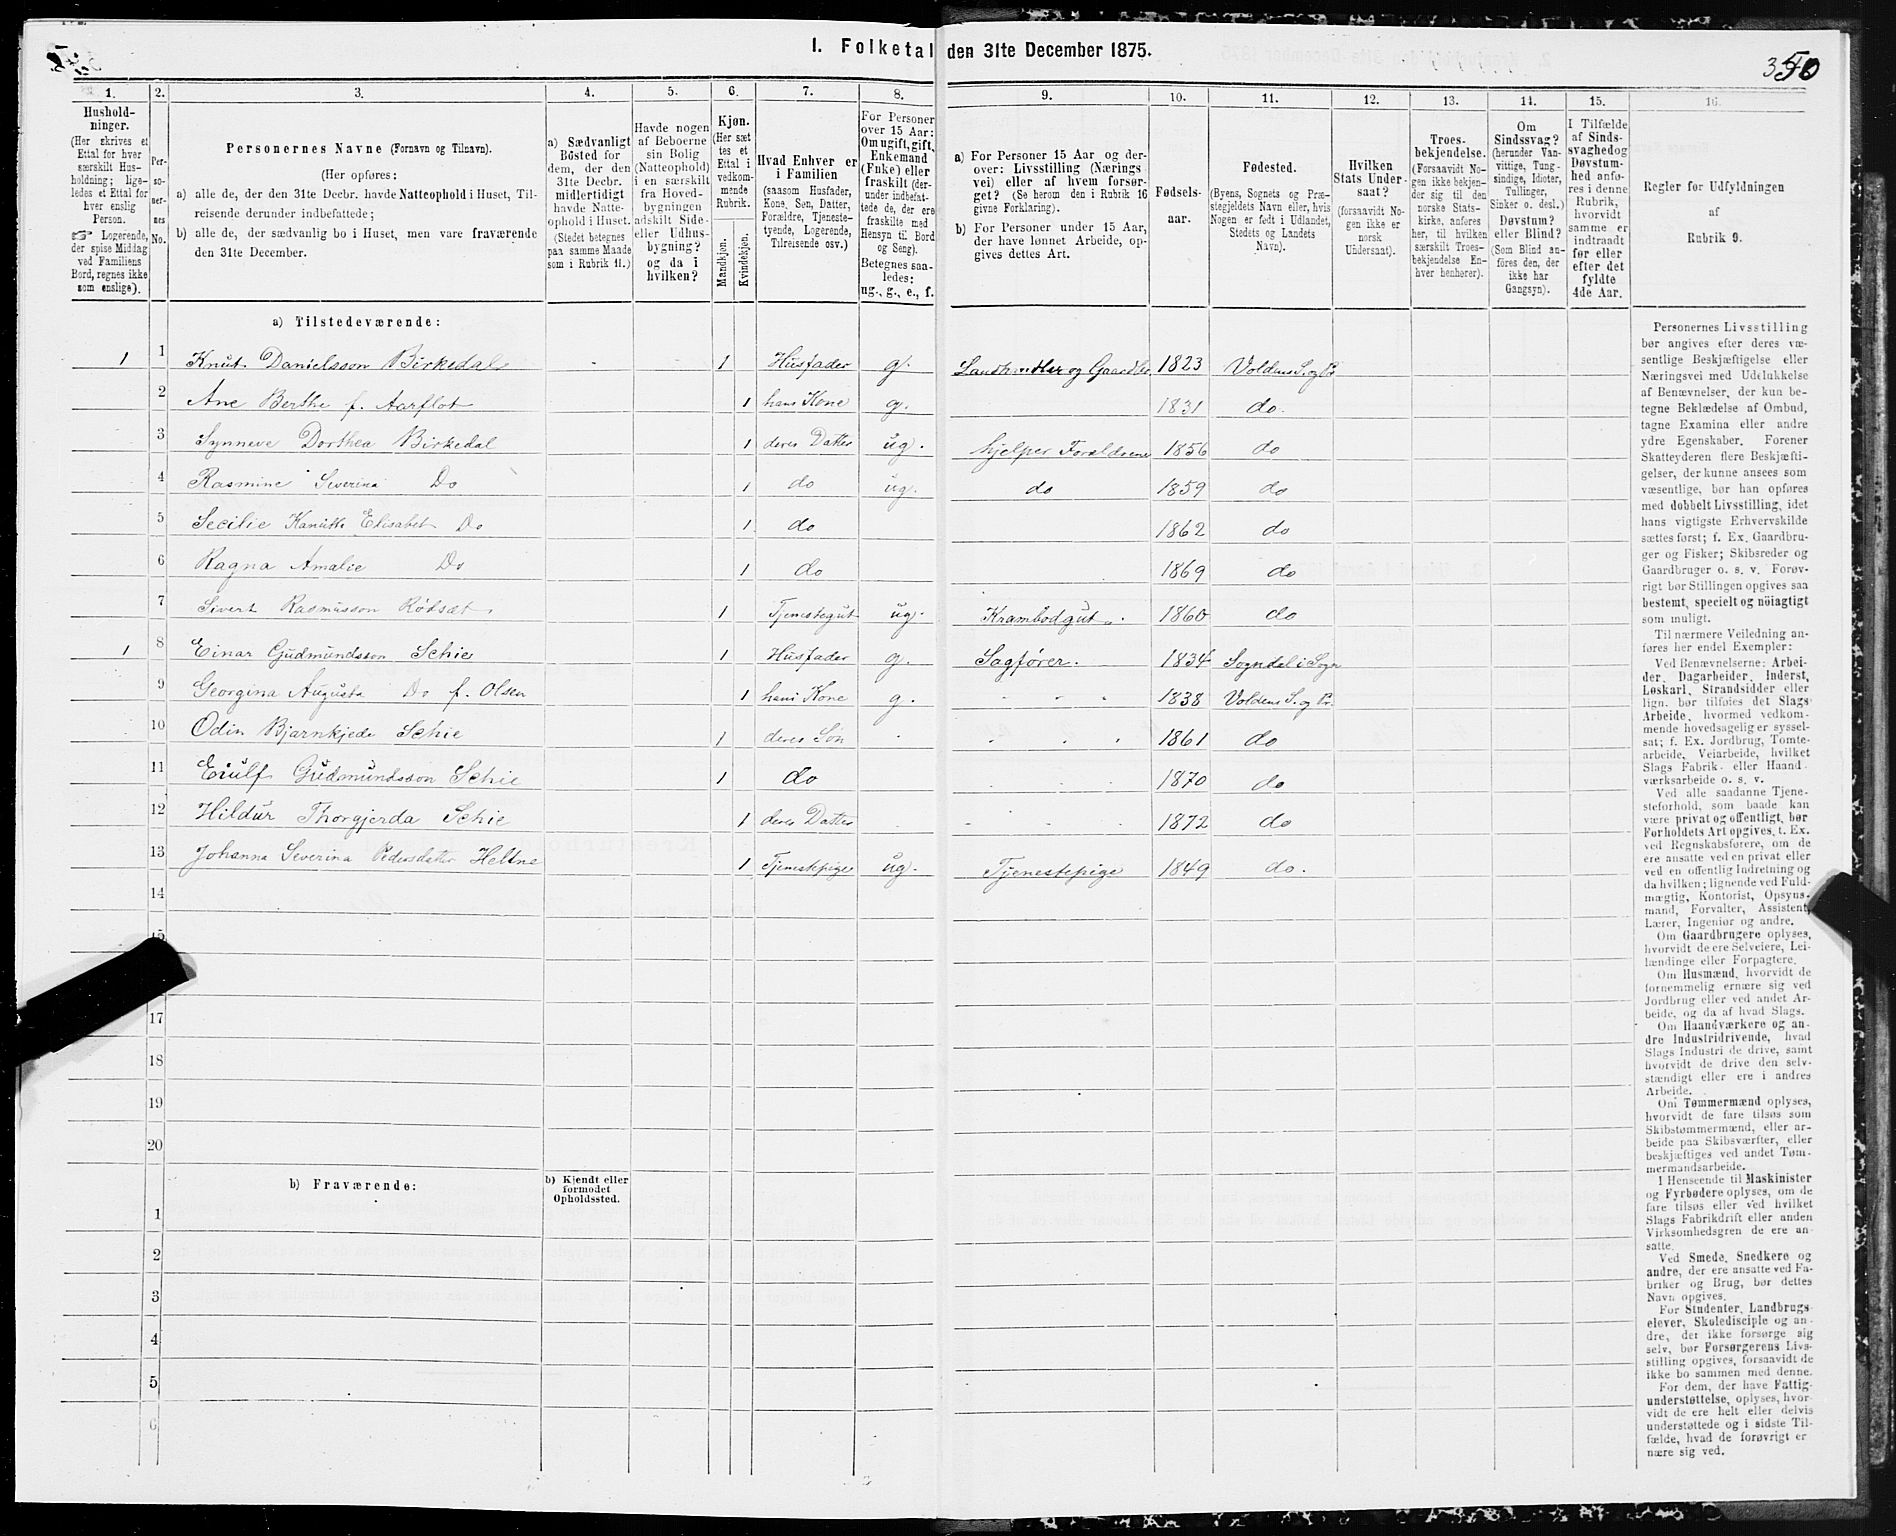 I. Folketal den 31te December 1875.
350
1.
2.
3.
4.
5.
6.
7.
8.
9.
10.
11.
12.
13.
14.
15.
16.
Hushold-
ninger.
(Her skrives et
Ettal for hver
særskilt Hus-
holdning; lige-
ledes et Ettal for
hver enslig
Person.
☞ Logerende,
der spise Middag
ved Familiens
Bord, regnes ikke
som enslige).
Per-
so-
ner-
nes
No.
Personernes Navne (Fornavn og Tilnavn).
(Her opføres:
a) alle de, der den 31te Decbr. havde Natteophold i Huset, Til-
reisende derunder indbefattede;
b) alle de, der sædvanlig bo i Huset, men vare fraværende
den 31te December.
a) Sædvanligt
Bosted for
dem, der den
31te Decbr.
midlertidigt
havde Natte-
ophold i Huset.
(Stedet betegnes
paa samme Maade
som i Rubrik 11.)
Havde nogen
af Beboerne
sin Bolig
(Natteophold)
i en særskilt
fra Hoved-
bygningen
adskilt Side-
eller Udhus-
bygning?
og da i
hvilken?
Kjøn.
(Her sæt-
tes et
Ettal i
vedkom-
mende
Rubrik.
Mandkjøn.
Kvindekjøn.
Hvad Enhver er
i Familien
(saasom Husfader,
Kone, Søn, Datter,
Forældre, Tjeneste-
tyende, Logerende,
Tilreisende osv.)
For Personer
over 15 Aar:
Om ugift, gift,
Enkemand
(Enke) eller
fraskilt (der-
under indbefat-
tede de, der ere
fraskilte med
Hensyn til Bord
og Seng).
Betegnes saa-
ledes:
ug., g., e., f.
a) For Personer 15 Aar og der-
over: Livsstilling (Nærings
vei) eller af hvem forsør-
get? (Se herom den i Rubrik 16
givne Forklaring).
b) For Personer under 15 Aar,
der have lønnet Arbeide, op-
gives dettes Art.
Fødsels-
aar.
Fødested.
(Byens, Sognets og Præ-
stegjeldets Navn eller, hvis
Nogen er født i Udlandet,
Stedets og Landets
Navn).
Hvilken
Stats Under-
saat?
(forsaavidt No-
gen ikke er
norsk
Undersaat).
Troes-
bekjendelse.
(Forsaavidt No-
gen ikke bekjen-
der sig til den
norske Stats-
kirke, anføres
her, til hvilken
særskilt Troes-
bekjendelse En-
hver henhører).
Om
Sindssvag?
(herunder Van-
vittige, Tung-
sindige, Idioter,
Tullinger,
Sinker o. desl.)
Døvstum?
eller Blind?
(Som Blind an-
føres den, der
ikke har
Gangsyn).
I Tilfælde
af Sinds-
svaghed og
Døvstum-
hed anfø-
res i denne
Rubrik,
hvorvidt
samme er
indtraadt
før eller
efter det
fyldte
4de Aar.
Regler for Udfyldningen
af
Rubrik 9.
a) Tilstedeværende:
1 1 Knut Danielsson Birkedal 1 Husfader g. Landhandler og Gaardbr. 1823 Voldens S. og Pr
2 Ane Berthe f. Aarflot 1 hans Kone g. 1831 do.
3 Synneve Dorthea Birkedal 1 deres Datter ug. hjelper Forældrene 1856 do
4 Rasmine Severina Do 1 do ug. do 1859 do
5 Secilie Kanutte Elisabet Do 1 do 1862 do
6 Ragna Amalie Do 1 do 1869 do
7 Sivert Rasmusson Rødsæt. 1 Tjenestegut ug. Krambodgut 1860 do
1 8 Einar Gudmundsson Schie 1 Husfader g. Sagfører. 1834 Sogndal i Sogn
9 Georgina Augusta Do f. Olsen 1 hans Kone g. 1838 Voldens S. og Pr.
10 Odin Bjarnkjede Schie 1 deres Søn 1861 do
11 Eiulf Gudmundsson Schie 1 do 1870 do
12 Hildur Thorgjerda Schie 1 deres Datter 1872 do
13 Johanna Severina Pedersdatter Heltne 1 Tjenestepige ug. Tjenestepige 1849 do.
14
15
17
18
19
20
b) Fraværende:
b) Kjendt eller
formodet
Opholdssted.
1
2
3
4
5
6
Personernes Livsstilling
bør angives efter deres væ-
sentlige Beskjæftigelse eller
Næringsvei med Udelukkelse
af Benævnelser, der kun be-
tegne Beklædelse af Ombud,
tagne Examina eller andre
ydre Egenskaber. Forener
Skatteyderen flere Beskjæfti-
gelser, der kunne ansees som
væsentlige, bør han opføres
med dobbelt Livsstilling, idet
hans vigtigste Erhvervskilde
sættes først; f. Ex. Gaardbru-
ger og Fisker; Skibsreder og
Gaardbruger o. s. v. Forøv-
rigt bør Stillingen opgives saa
bestemt, specielt og nöiagtigt
som muligt.
Til nærmere Veiledning an-
føres her endel Exempler:
Ved Benævnelserne: Arbei-
der, Dagarbeider, Inderst,
Løskarl, Strandsidder eller
lign. bør tilføies det Slags
Arbeide, hvormed vedkom-
mende hovedsagelig er syssel-
sat; f. Ex. Jordbrug, Tomte-
arbeide, Veiarbeide, hvilket
Slags Fabrik- eller Haand-
værksarbeide o. s. v.
Ved alle saadanne Tjene-
steforhold, som baade kan
være privat og offentligt, bør
Forholdets Art opgives, t. Ex.
ved Regnskabsførere, om de
ere ansatte ved en privat eller
ved en offentlig Indretning og
da hvilken; lignende ved Fuld-
mægtig, Kontorist, Opsyns-
mand, Forvalter, Assistent,
Lærer, Ingeniør og andre.
Om Gaardbrugere oplyses,
hvorvidt de ere Selveiere, Lei-
lændinge eller Forpagtere.
Om Husmænd, hvorvidt de
fornemmelig ernære sig ved
Jordbrug eller ved andet Ar-
beide, og da af hvad Slags.
Om Haandværkere og an-
dre Industridrivende, hvad
Slags Industri de drive, samt
hvorvidt de drive den selv-
stændigt eller ere i andres
Arbeide.
Om Tømmermænd oplyses,
hvorvidt de fare tilsøs som
Skibstømmermænd, eller ar-
beide paa Skibsværfter, eller
beskjæftiges ved andet Tøm-
mermandsarbeide.
I Henseende til Maskinister
og Fyrbødere oplyses, om de
fare tilsøs eller ved hvilket
Slags Fabrikdrift eller anden
Virksomhedsgren de ere an-
satte.
Ved Smede, Snedkere og
andre, der ere ansatte ved Fa-
briker og Brug, bør dettes
Navn opgives.
For Studenter, Landbrugs-
elever, Skoledisciple og an-
dre, der ikke forsørge sig
selv, bør Forsørgerens Livs-
stilling opgives, forsaavidt de
ikke bo sammen med denne.
For dem, der have Fattig-
understøttelse, oplyses, hvor-
vidt de ere helt eller delvis
understøttede og i sidste Til-
fælde, hvad de forøvrigt er-
nære sig ved.